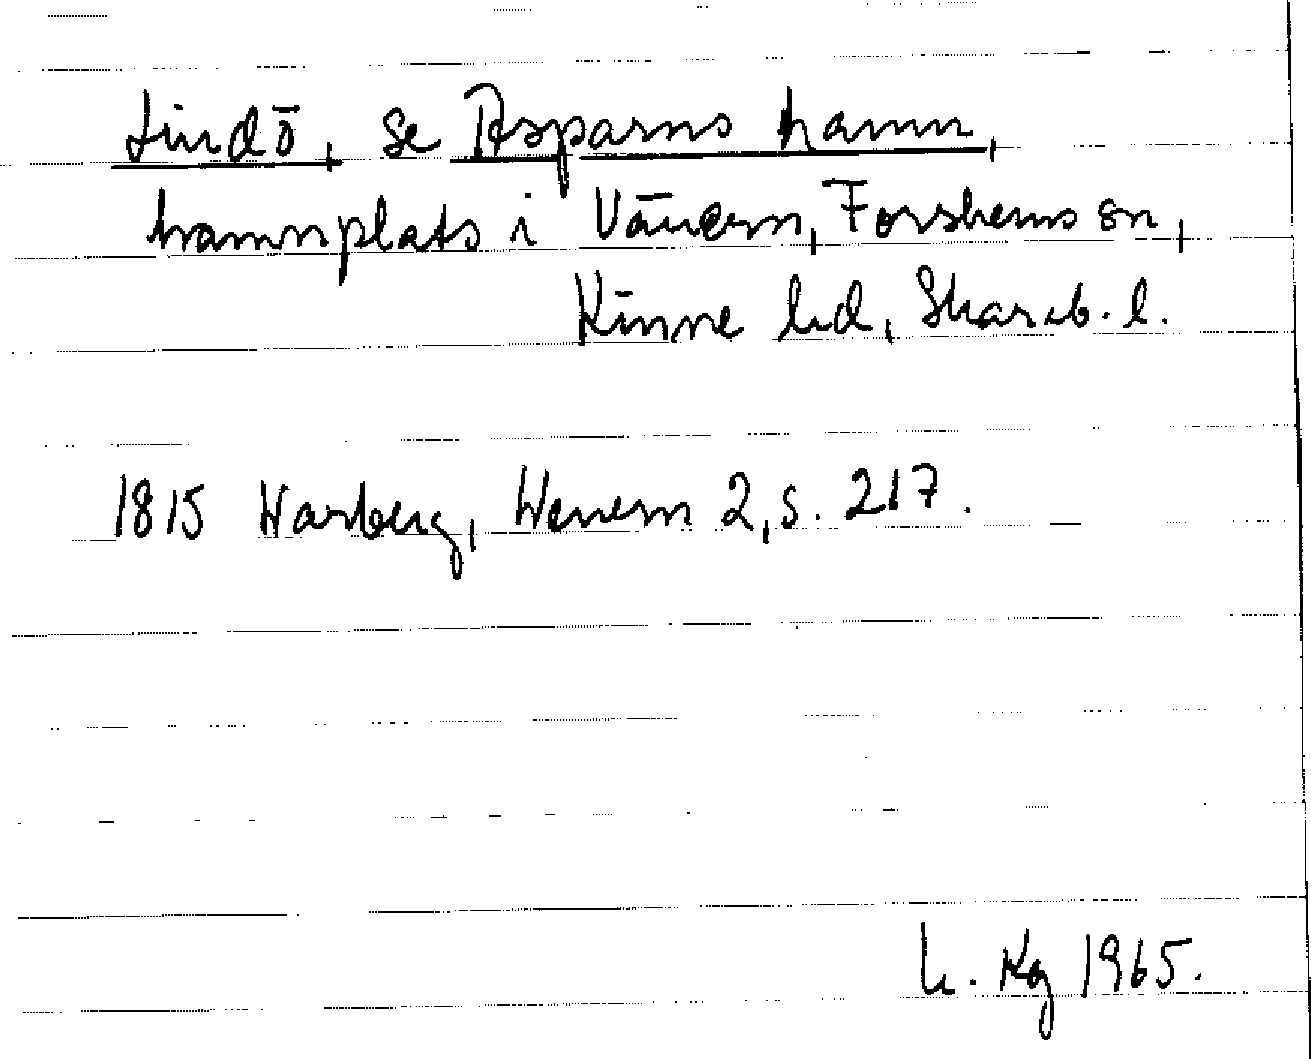 Lindö, se Asparns hamn,
hamnplats i Vänern, Forshems sn,
Kinne hd, Skarab. l.
1815 Warberg, Wenern 2, s. 217.
h. Kg 1965.